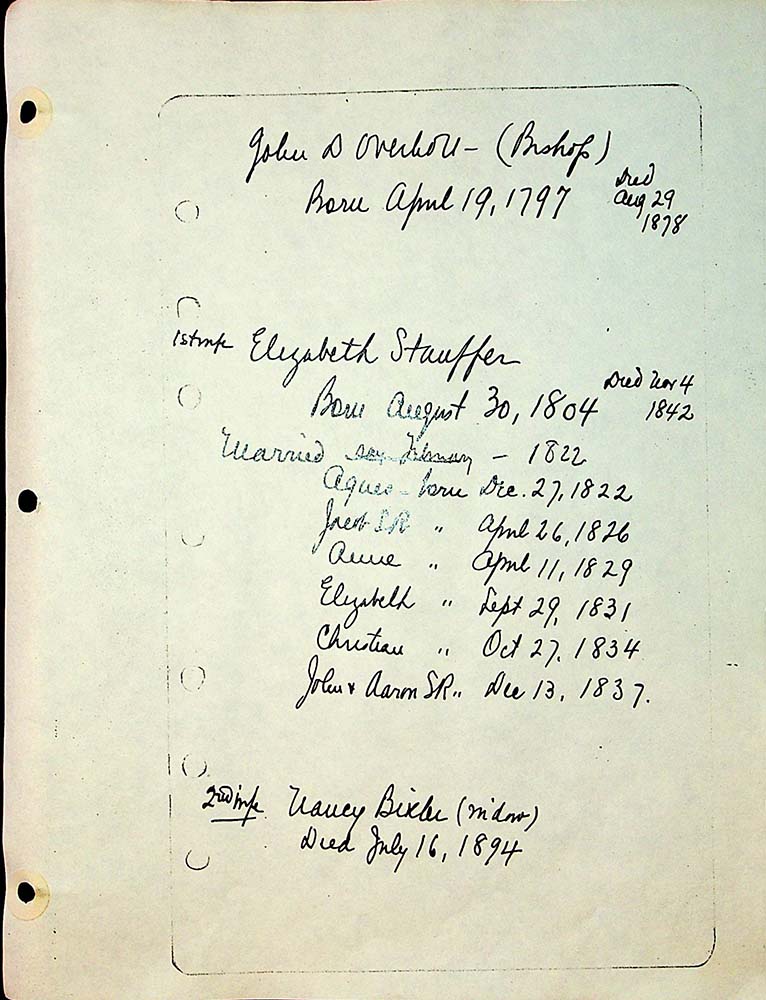 John D Overholt - (Bishop)
Born April 19, 1797
Died
Aug 29
1878
1st wife Elizabeth Stauffer
Died Nov 4
1842
Born August 30, 1804
Married February - 1822
Agnes - born Dec. 27, 1822
Jacob SR " April 26, 1826
Anne " April 11, 1829
Elizabeth " Sept 29, 1831
Christian " Oct 27, 1834
John & Aaron SR " Dec 13, 1837.
2nd wife Nancy Bixler (widow)
Died July 16, 1894